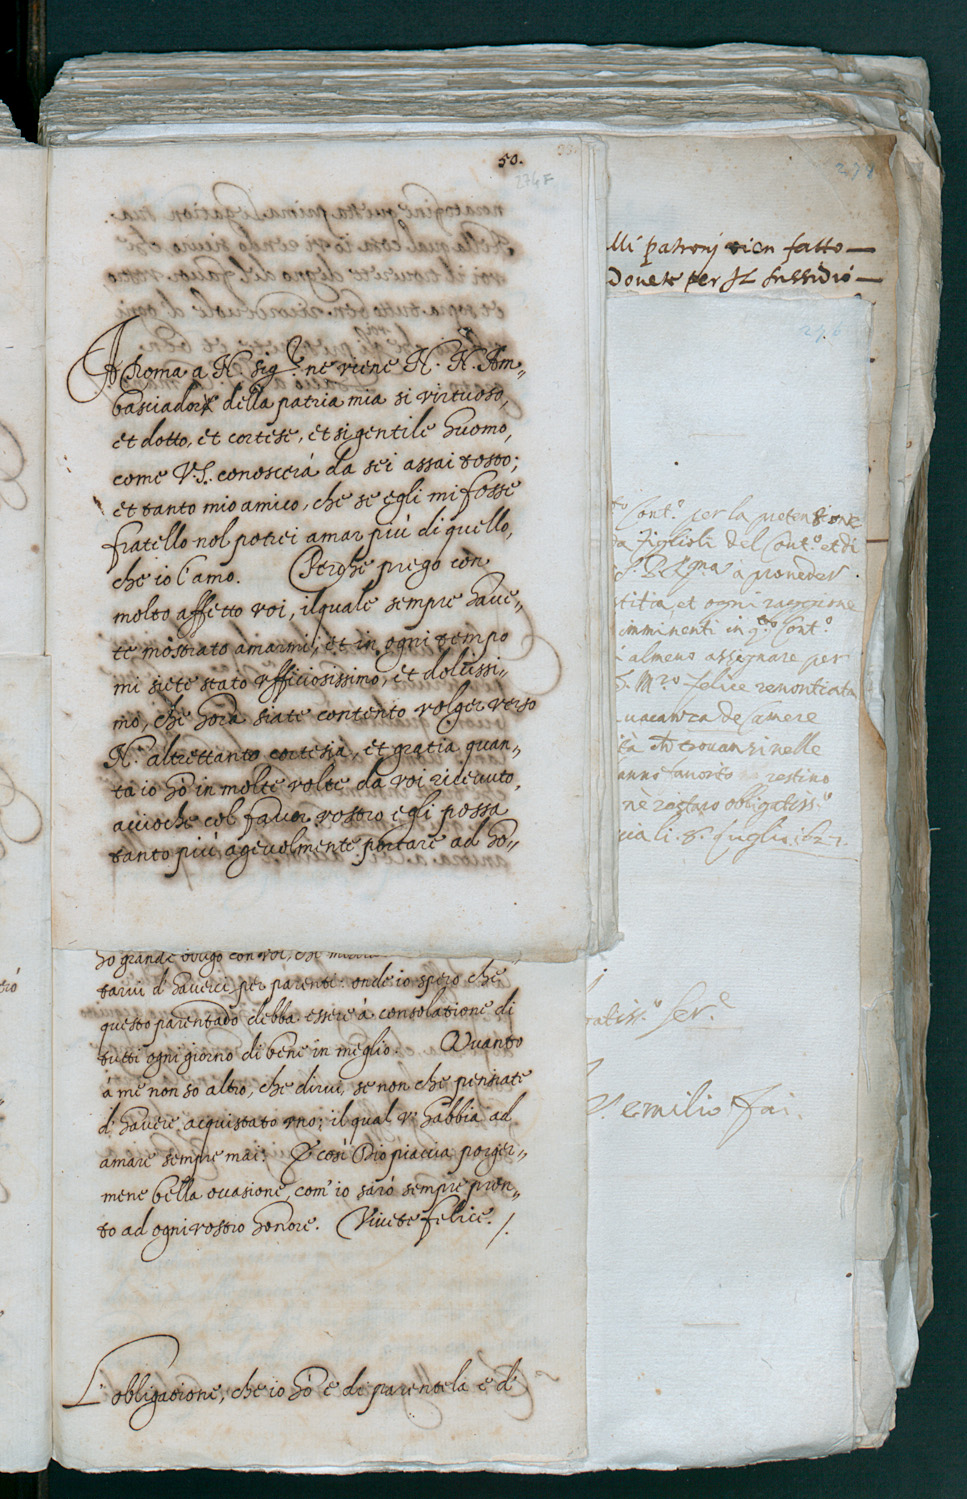 50.
274F
A Roma a N. Sig.re ne viene N. N. Am-
basciador della patria mia si virtuoso,
et dotto, et cortese, et si gentile huomo,
come V.S. conoscerà da sei assai tosto;
et tanto mio amico, che se egli mi fosse
fratello nol potrei amar più di quello,
che io l'amo. Perche prego con
molto affetto voi, il quale sempre have-
te mostrato amarmi, et in ogni tempo
mi siete stato ufficiosissimo, et dolcissi-
mo, che hora siate contento volger verso
N. altrettanto cortesia, et gratia quan-
ta io hò in molte volte da voi ricevuto,
acciochè col favor vostro egli possa
tanto più agevolmente portare ad ho-
ho grande obligo con voi, che
tarvi d'haverci per parente: onde io spero che
questo parentado debba essere à consolatione di
tutti ogni giorno di bene in meglio. Quanto
à me non so altro, che dirvi, se non che pensiate
d'havere acquistato uno; il qual v'habbia ad
amare sempre mai: Et così Dio piaccia porger-
mene bella occasione, com'io sarò sempre pron-
to ad ogni vostro honore. Vivete felice. /.
L'obligatione, che io hò è di parentela e d'
278
lli patronj vien fatto
Dovete per Il sussidio
276
Cont.o per la pretensione
figlioli del Cont.o et di
à proveder
et ogni raggione
imminenti in q.to Cont.o
almeno assegnare per
M.ro Felice renontiata
vacanza de Camere
trovansi nelle
restino
nè restaro obligatiss.o
li. 8. luglio. 1621.
Ser.e
emilio fai.